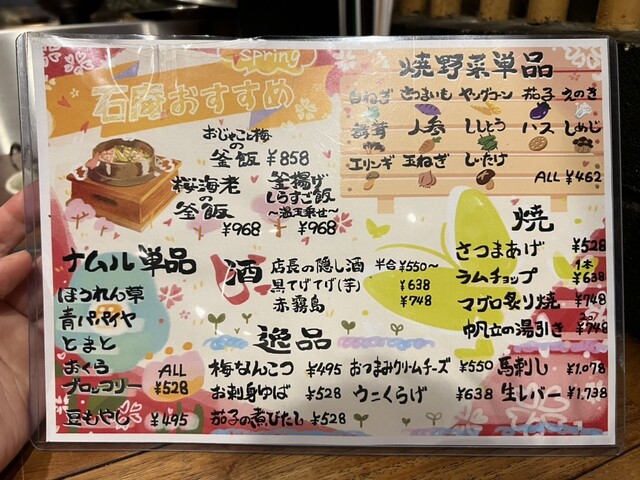 spring
石庵おすすめ
おじゃこと梅
の
釜飯 ¥858
桜海老
の
釜飯
¥968
釜揚げ
しらすご飯
〜温玉乗せ〜
¥968
焼野菜単品
白ねぎ さつまいも ヤングコーン 茄子 えのき
舞茸 人参 ししとう ハス しめじ
エリンギ 玉ねぎ しいたけ
ALL ¥462
焼
さつまあげ ¥528
ラムチョップ 1本 ¥638
マグロ炙り焼 ¥748
帆立の湯引き 2コ ¥748
ナムル単品
ほうれん草
青パパイヤ
とまと
おくら
ブロッコリー
ALL
¥528
豆もやし ¥495
酒
店長の隠し酒 半合¥550〜
黒てげてげ(芋) ¥638
赤霧島 ¥748
逸品
梅なんこつ ¥495
お刺身ゆば ¥528
茄子の煮びたし ¥528
おつまみクリームチーズ ¥550
ウニくらげ ¥638
馬刺し ¥1,078
生レバー ¥1,738